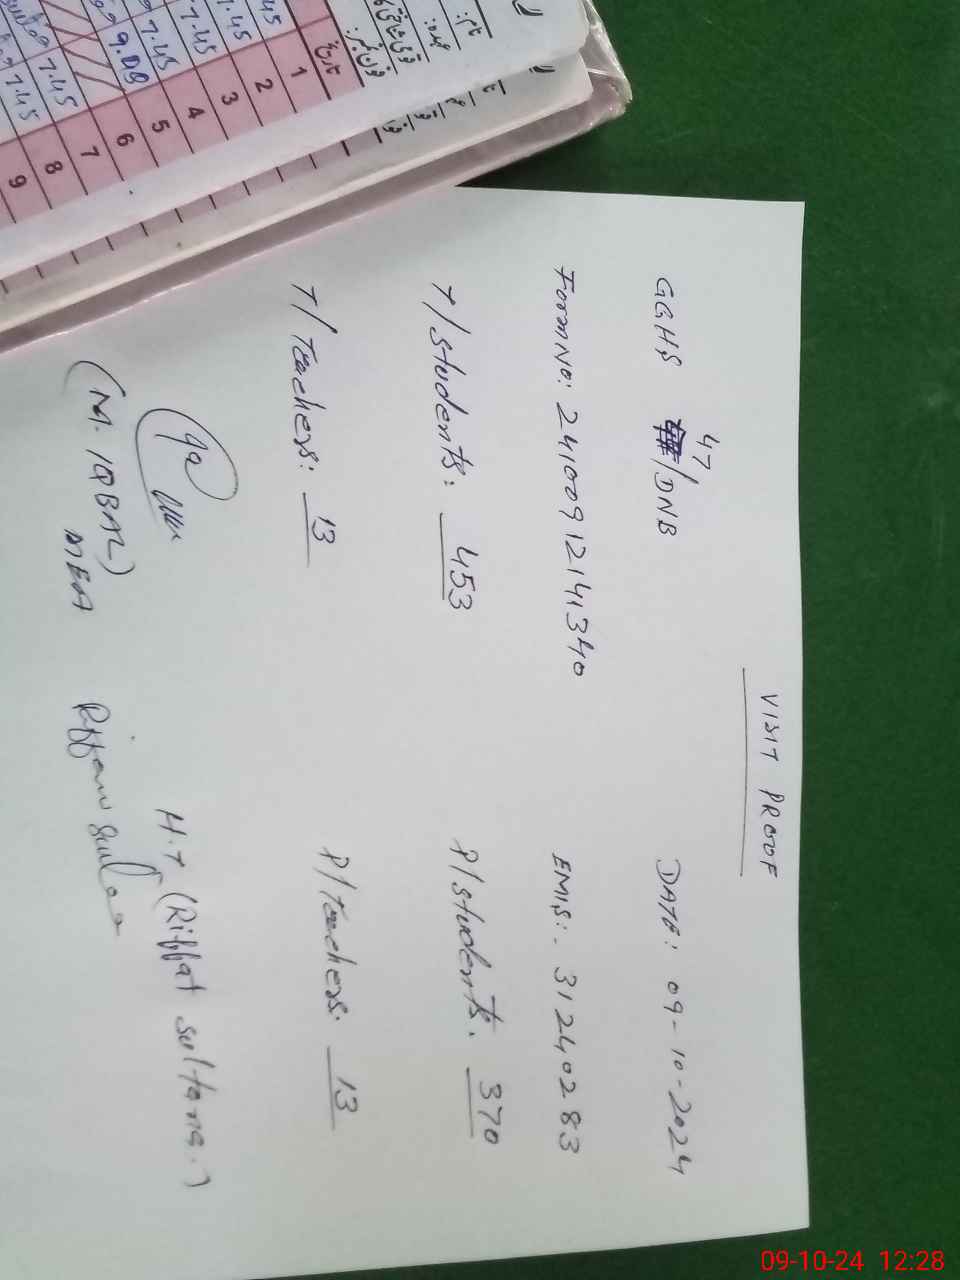 VISIT PROOF
GGHS 47/DNB
DATE: 09-10-2024
Form No: 24100912141340
EMIS:. 31240283
T/students: 453
P/students. 370
T/Teachers: 13
P/Teachers. 13
(M. IQBAL)
MEA
H.T (Riffat sultana.)
نام:
عہدہ:
فون نمبر:
تاریخ
1
2
3
4
5
6
7
8
9
7.45
7.45
7.45
7.45
7.45
09-10-24 12:28